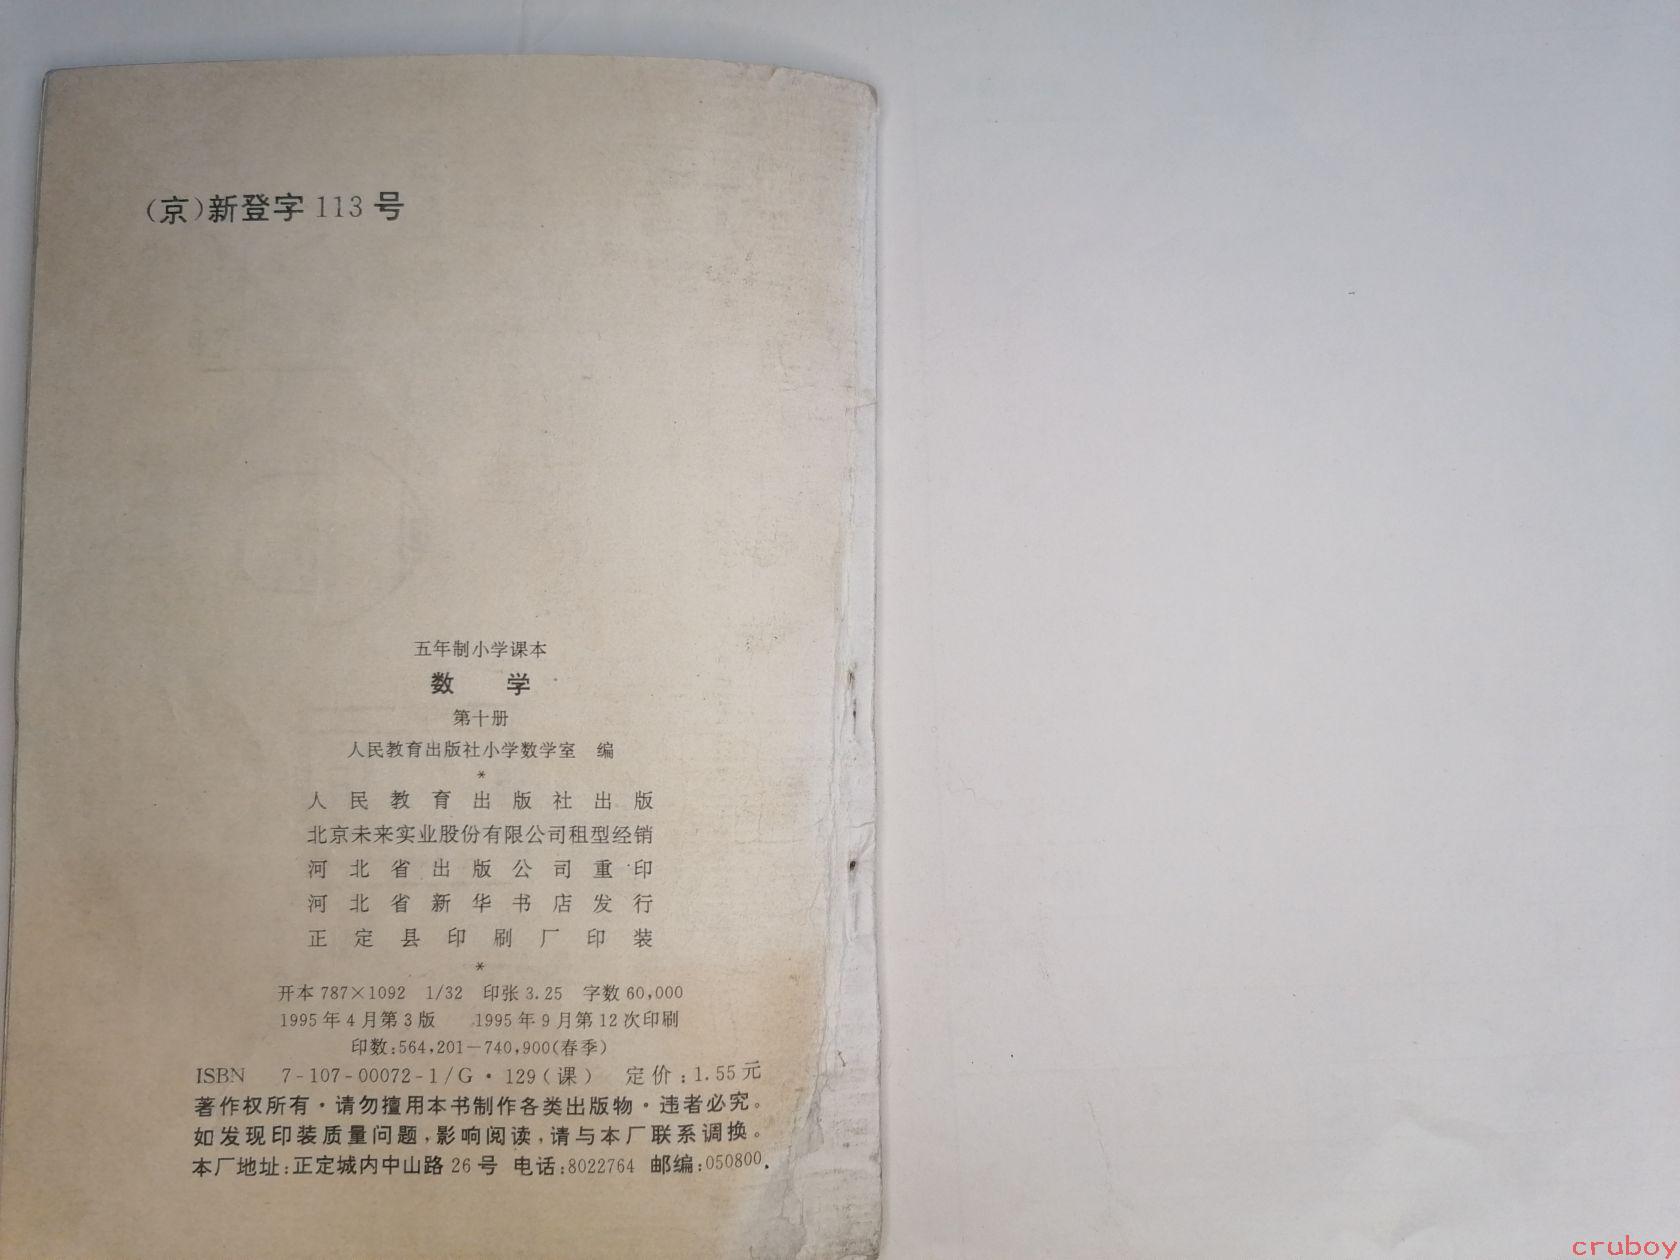 （京）新登字 113 号
五年制小学课本
数 学
第十册
人民教育出版社小学数学室 编
*
人民教育出版社出版
北京未来实业股份有限公司租型经销
河北省出版公司重印
河北省新华书店发行
正定县印刷厂印装
*
开本 787×1092 1/32 印张 3.25 字数 60,000
1995 年 4 月第 3 版 1995 年 9 月第 12 次印刷
印数:564,201—740,900(春季)
ISBN 7-107-00072-1/G·129(课) 定价:1.55元
著作权所有·请勿擅用本书制作各类出版物·违者必究。
如发现印装质量问题,影响阅读,请与本厂联系调换。
本厂地址:正定城内中山路 26 号 电话:8022764 邮编:050800.
cruboy